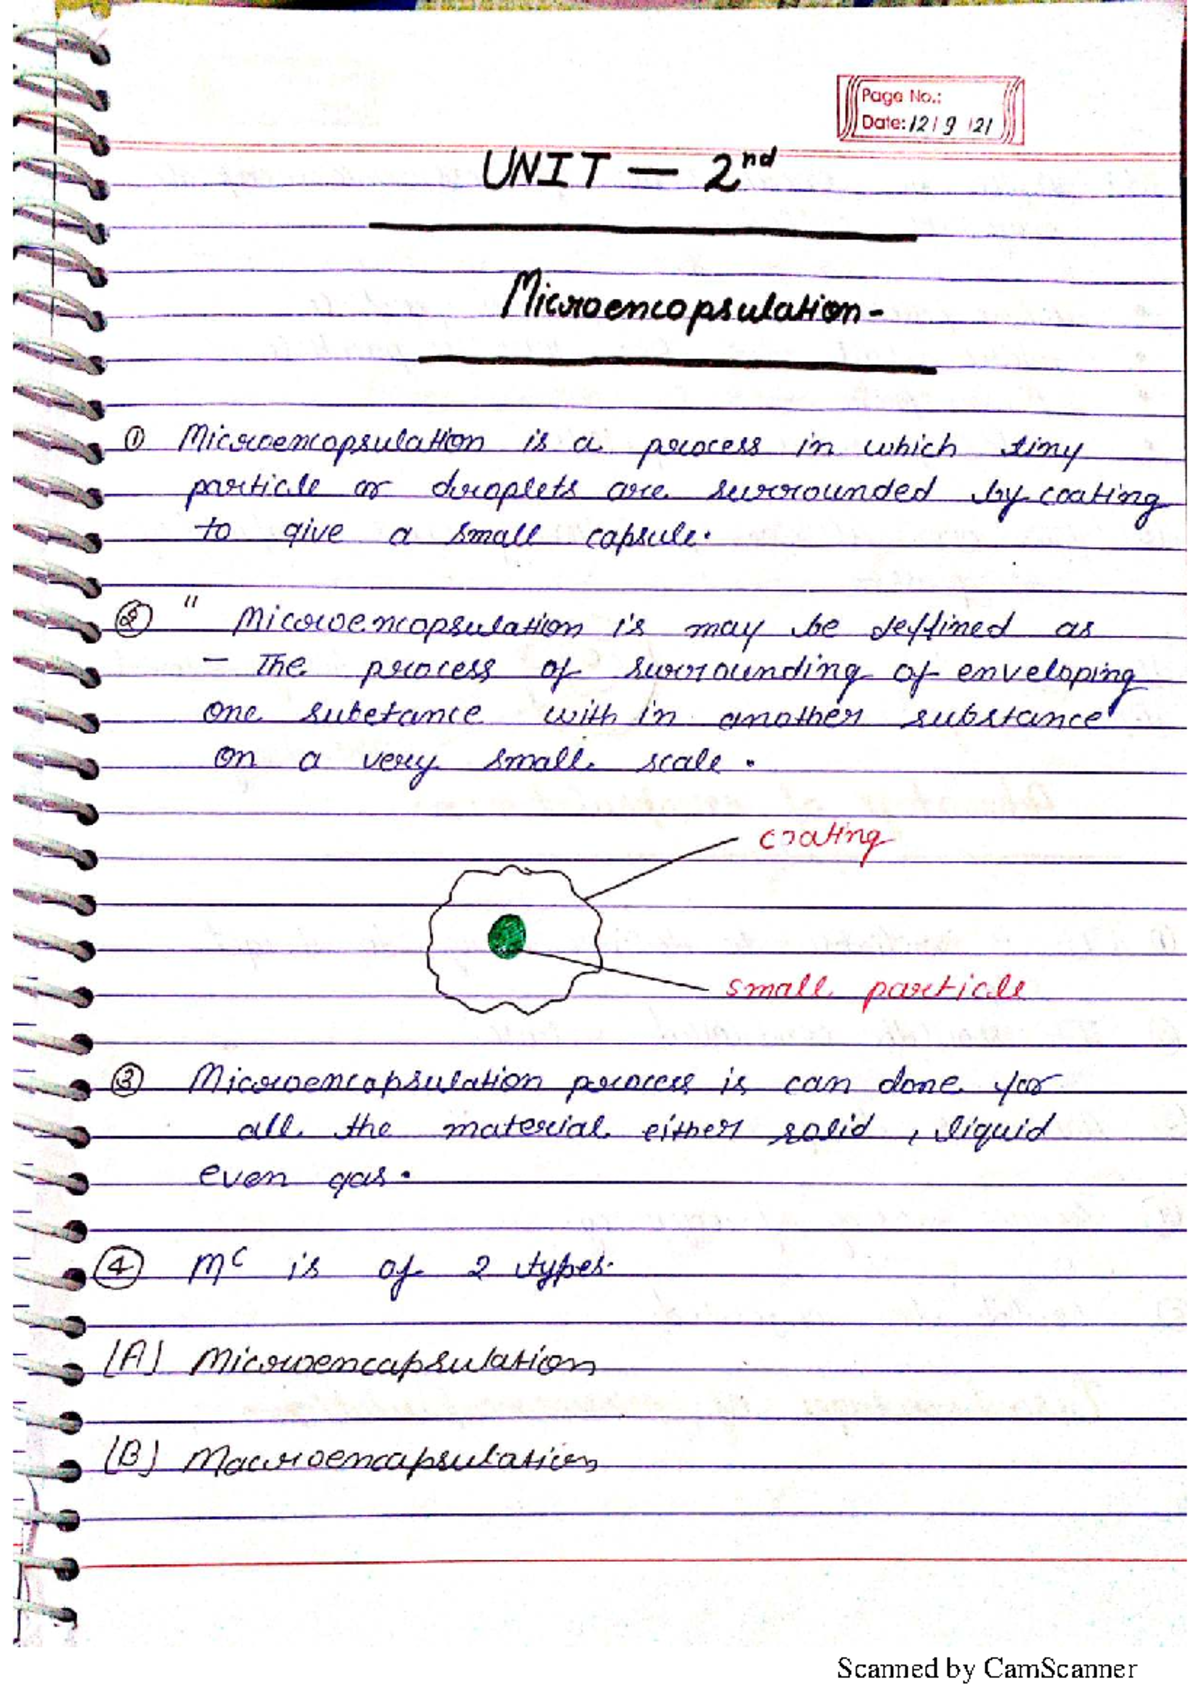 Page No.:
Date: 12/9/21
UNIT — 2nd
Microencapsulation -
① Microencapsulation is a process in which tiny
particle or droplets are surrounded by coating
to give a small capsule.
② " Microencapsulation is may be deffined as
- The process of surrounding of enveloping
one substance with in another substance
on a very small scale.
coating
small particle
③ Microencapsulation process is can done for
all the material either solid, liquid
even gas.
④ MC is of 2 types.
(A) Microencapsulation
(B) Macroencapsulation
Scanned by CamScanner